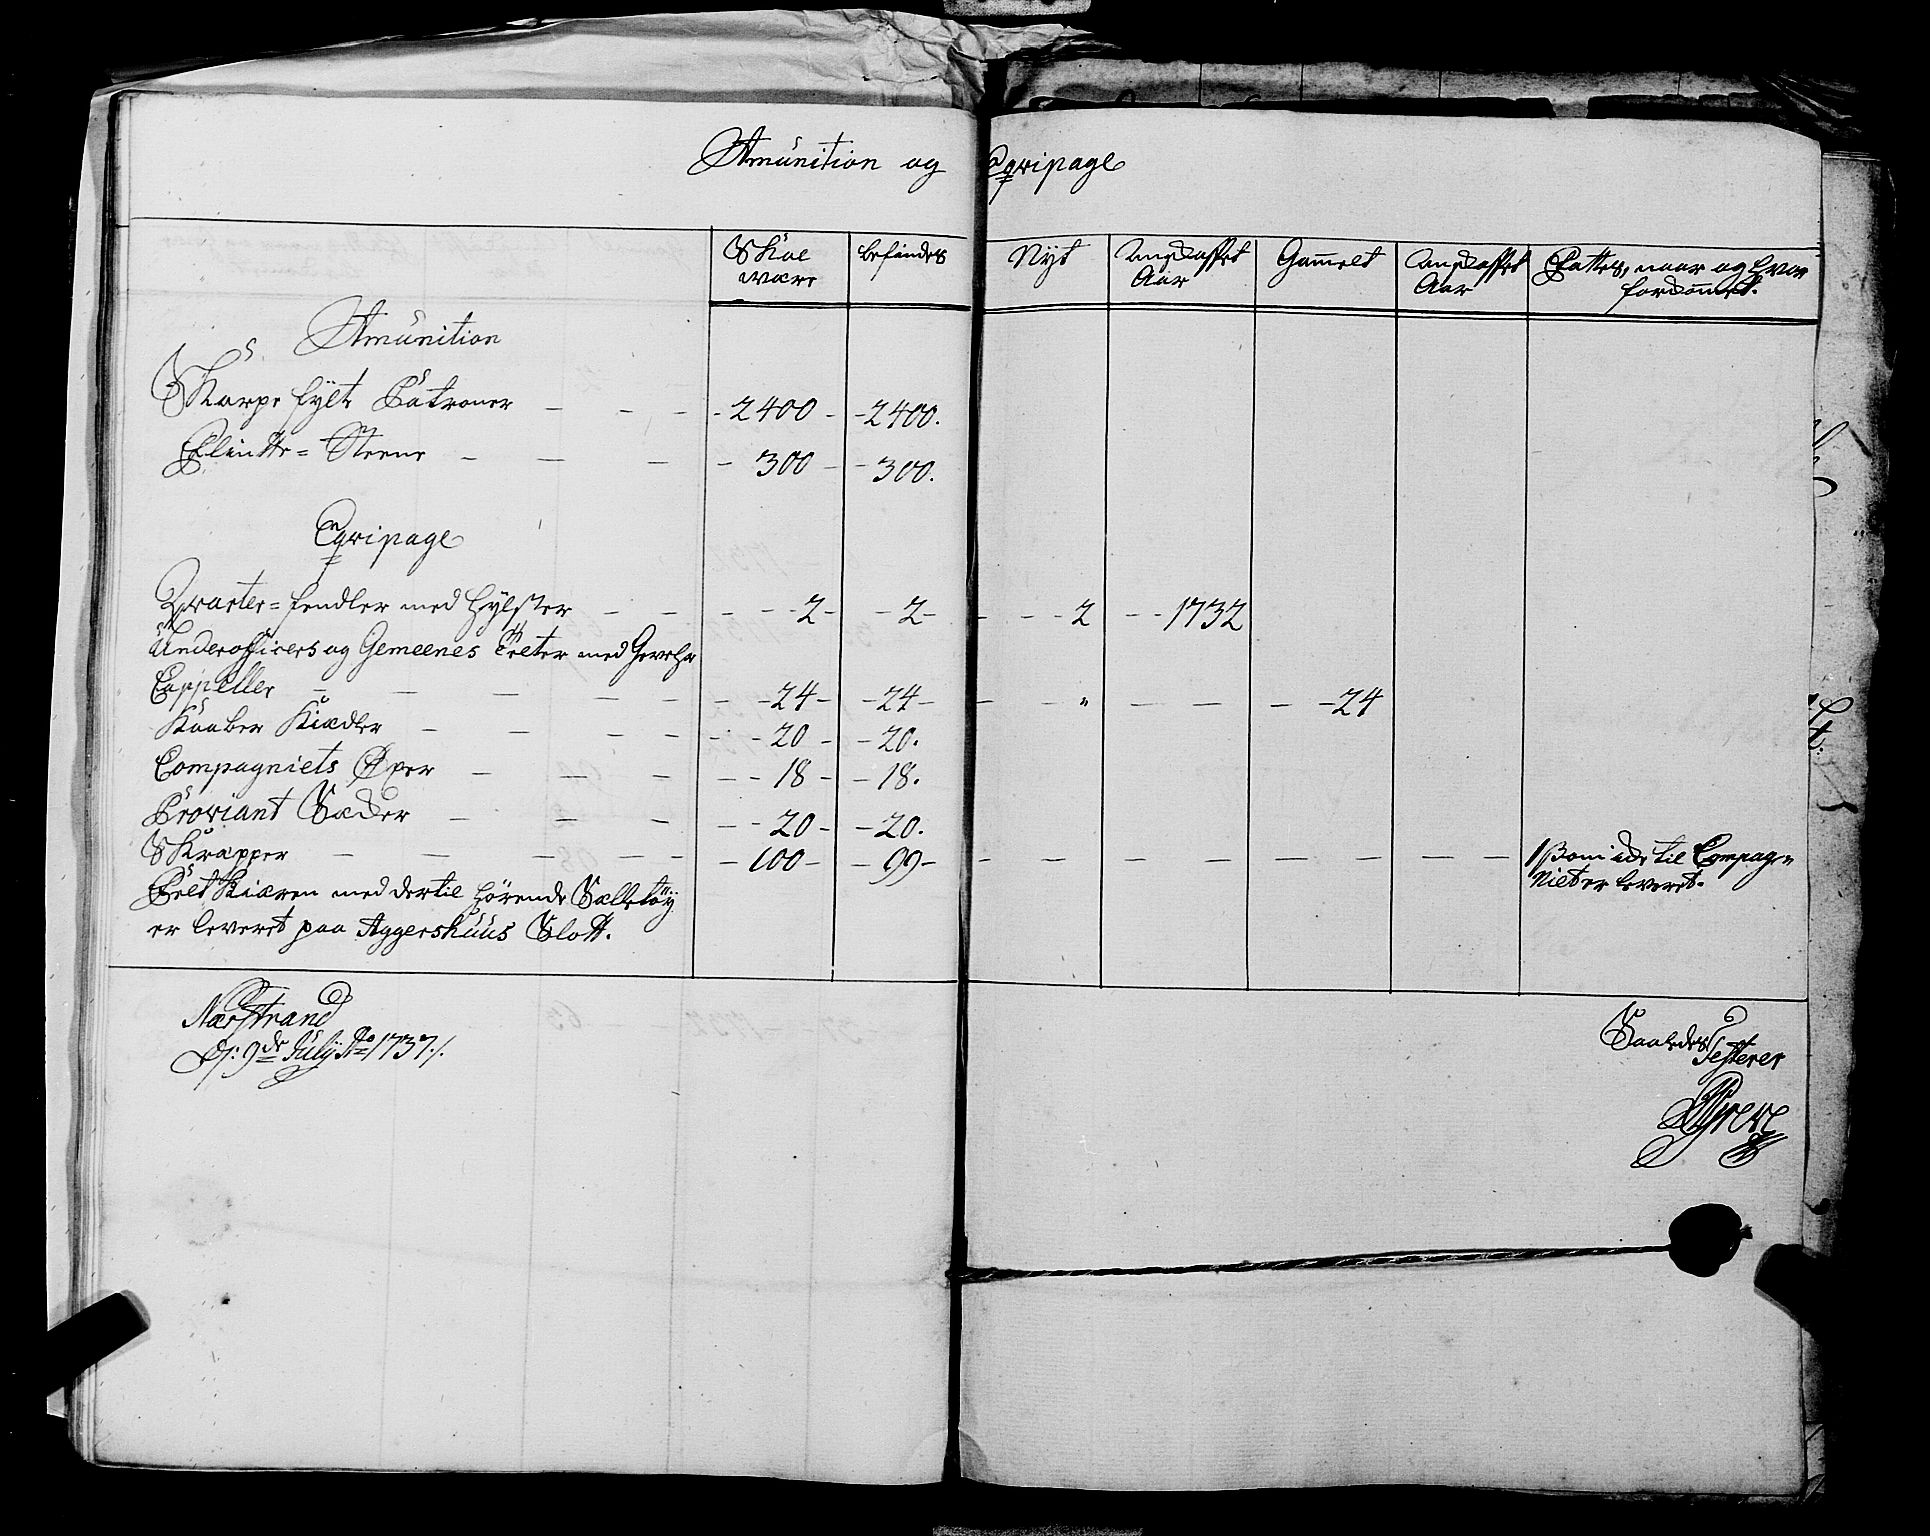 Amunition og Eqvipage
Skal være
befindes
Nyt
Anskaffet Aar
Gammelt
Anskaffet Aar
Fattes, naar og hvor forkommet.
Amunition
Skarpe fylte Patroner – – – 2400 – 2400.
Flintte = Steene – – – 300 – 300.
Eqvipage
Qvarteer = fendler med Hylster – – 2 – 2 – 2 – 1732
Underofficers og Gemeenes Telter med Gevehr
Cappeller – – – – – 24 – 24 – " – – – 24
Kaaber Kiædler – – – – 20 – 20.
Compagniets Øxer – – – 18 – 18.
Proviant Sæcker – – – 20 – 20.
Skræpper – – – – – 100 – 99 – – – – – – – – 1 som icke til Compag=
niet er leveret.
Felt Kiæren med dertil hørende Sælletøy
er leveret paa Aggershuus Slott.
Nærstrand
D: 9de July Ao 1737 ./.
Saaledes Testerer